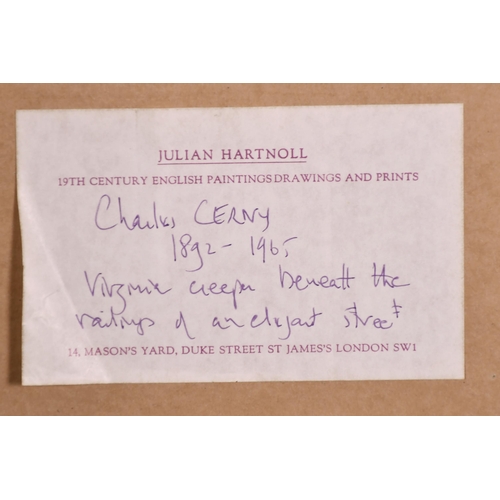 JULIAN HARTNOLL
19TH CENTURY ENGLISH PAINTINGS DRAWINGS AND PRINTS
Charles CERNY
1892-1965
Virginia creeper beneath the
railings of an elegant street
14, MASON'S YARD, DUKE STREET ST JAMES'S LONDON SW1